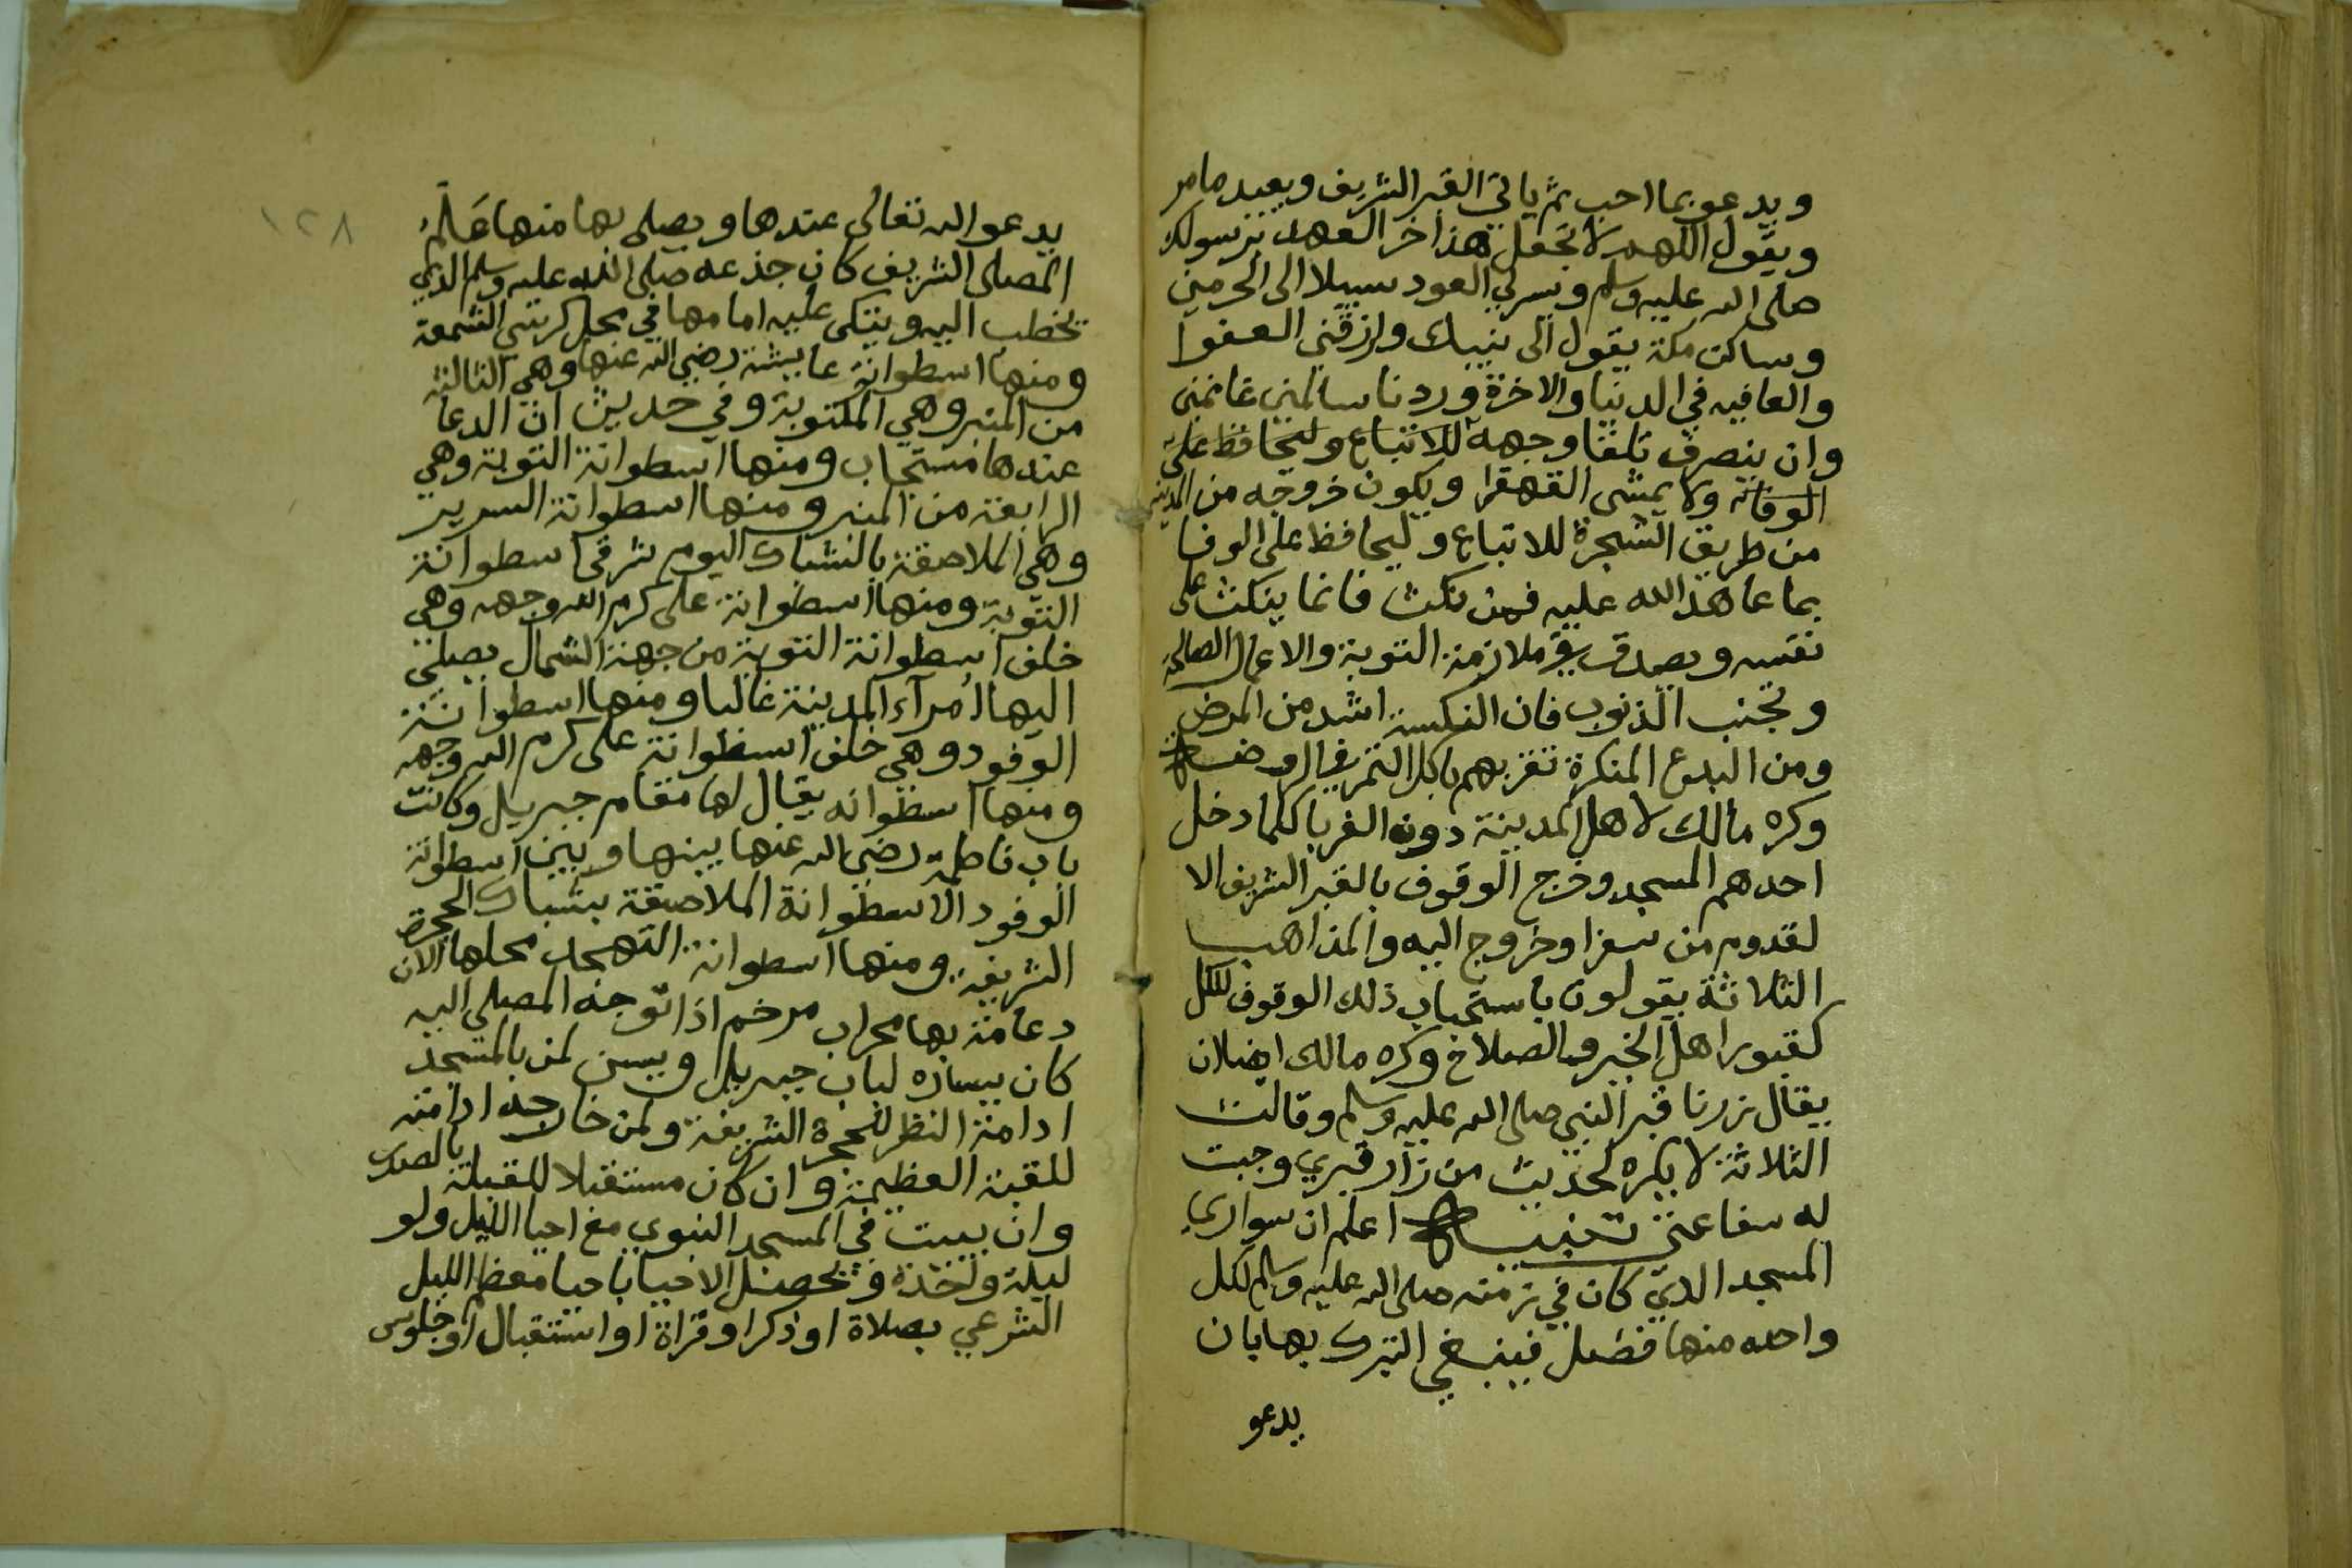 ويدعو بما احب ثم ياتي القبر الشريف ويعيد ما مر
ويقول اللهم لا تجعل هذا اخر العهد برسولك
صلى الله عليه وسلم ويسر لي العود سبيلا الى الحرمين
وساكن مكة يقول الى نبيك وارزقني العفوا
والعافيه في الدنيا والاخرة وردنا سالمين غانمين
وان ينصرف تلقا وجهه للاتباع وليحافظ على
الوفائه ولا يمشى القهقرا ويكون خروجه من المدينه
من طريق الشجرة للاتباع وليحافظ على الوفا
بما عاهد الله عليه فمن نكث فانما ينكث على
نفسه ويصدق في ملازمة التوبة والاعمال الصالحه
وتجنب الذنوب فان النكسة اشد من المرض
ومن البدع المنكرة تقربهم باكل التمر في الروضة
وكره مالك لاهل المدينة دون الغربا كلما دخل
احدهم المسجد وخرج الوقوف بالقبر الشريف الا
لقدوم من سفر او خروج اليه والمذاهب
الثلاثة يقولون باستحباب ذلك الوقوف للكل
كقبور اهل الخير والصلاح وكره مالك ايضا ان
يقال زرنا قبر النبي صلى الله عليه وسلم وقالت
الثلاثة لا يكره لحديث من زار قبري وجبت
له سفاعتي تنبيه اعلم ان سواري
المسجد الذي كان في زمنه صلى الله عليه وسلم لكل
واحده منها فضل فينبغي التبرك بها بان
يدعو
١٢٨
يدعو الله تعالى عندها ويصلى بها منها علم
المصلى الشريف كان جذعه صلى الله عليه وسلم الذي
يخطب اليه ويتكى عليه امامها في محل كرسي الشمعة
ومنها اسطوانة عايشة رضي الله عنها وهي الثالثة
من المنبر وهي المكتوبة وفي حديث ان الدعا
عندها مستجاب ومنها اسطوانة التوبة وهي
الرابعة من المنبر ومنها اسطوانة السرير
وهي الملاصقة بالشباك اليوم شرقي اسطوانة
التوبة ومنها اسطوانة على كرم الله وجهه وهي
خلف اسطوانة التوبة من جهة الشمال يصلى
اليها امرآء المدينة غالبا ومنها اسطوانة
الوفود وهي خلف اسطوانة على كرم الله وجهه
ومنها اسطوانه يقال لها مقام جبريل وكانت
باب فاطمة رضي الله عنها بينها وبين اسطوانة
الوفود الاسطوانة الملاصقة بشباك الحجرة
الشريفة ومنها اسطوانة التهجد محلها الان
دعامة بها محراب مرخم اذا توجه المصلى اليه
كان يساره لباب جبريل ويسن لمن بالمسجد
ادامة النظر للحجرة الشريفة ولمن خارجه ادامته
للقبة العظيمة وان كان مستقبلا للقبلة بالصدر
وان يبيت في المسجد النبوي مع احيا الليل ولو
ليلة واحدة ويحصل الاحيا باحيا معظم الليل
الشرعي بصلاة او ذكر او قراة او استقبال او جلوس